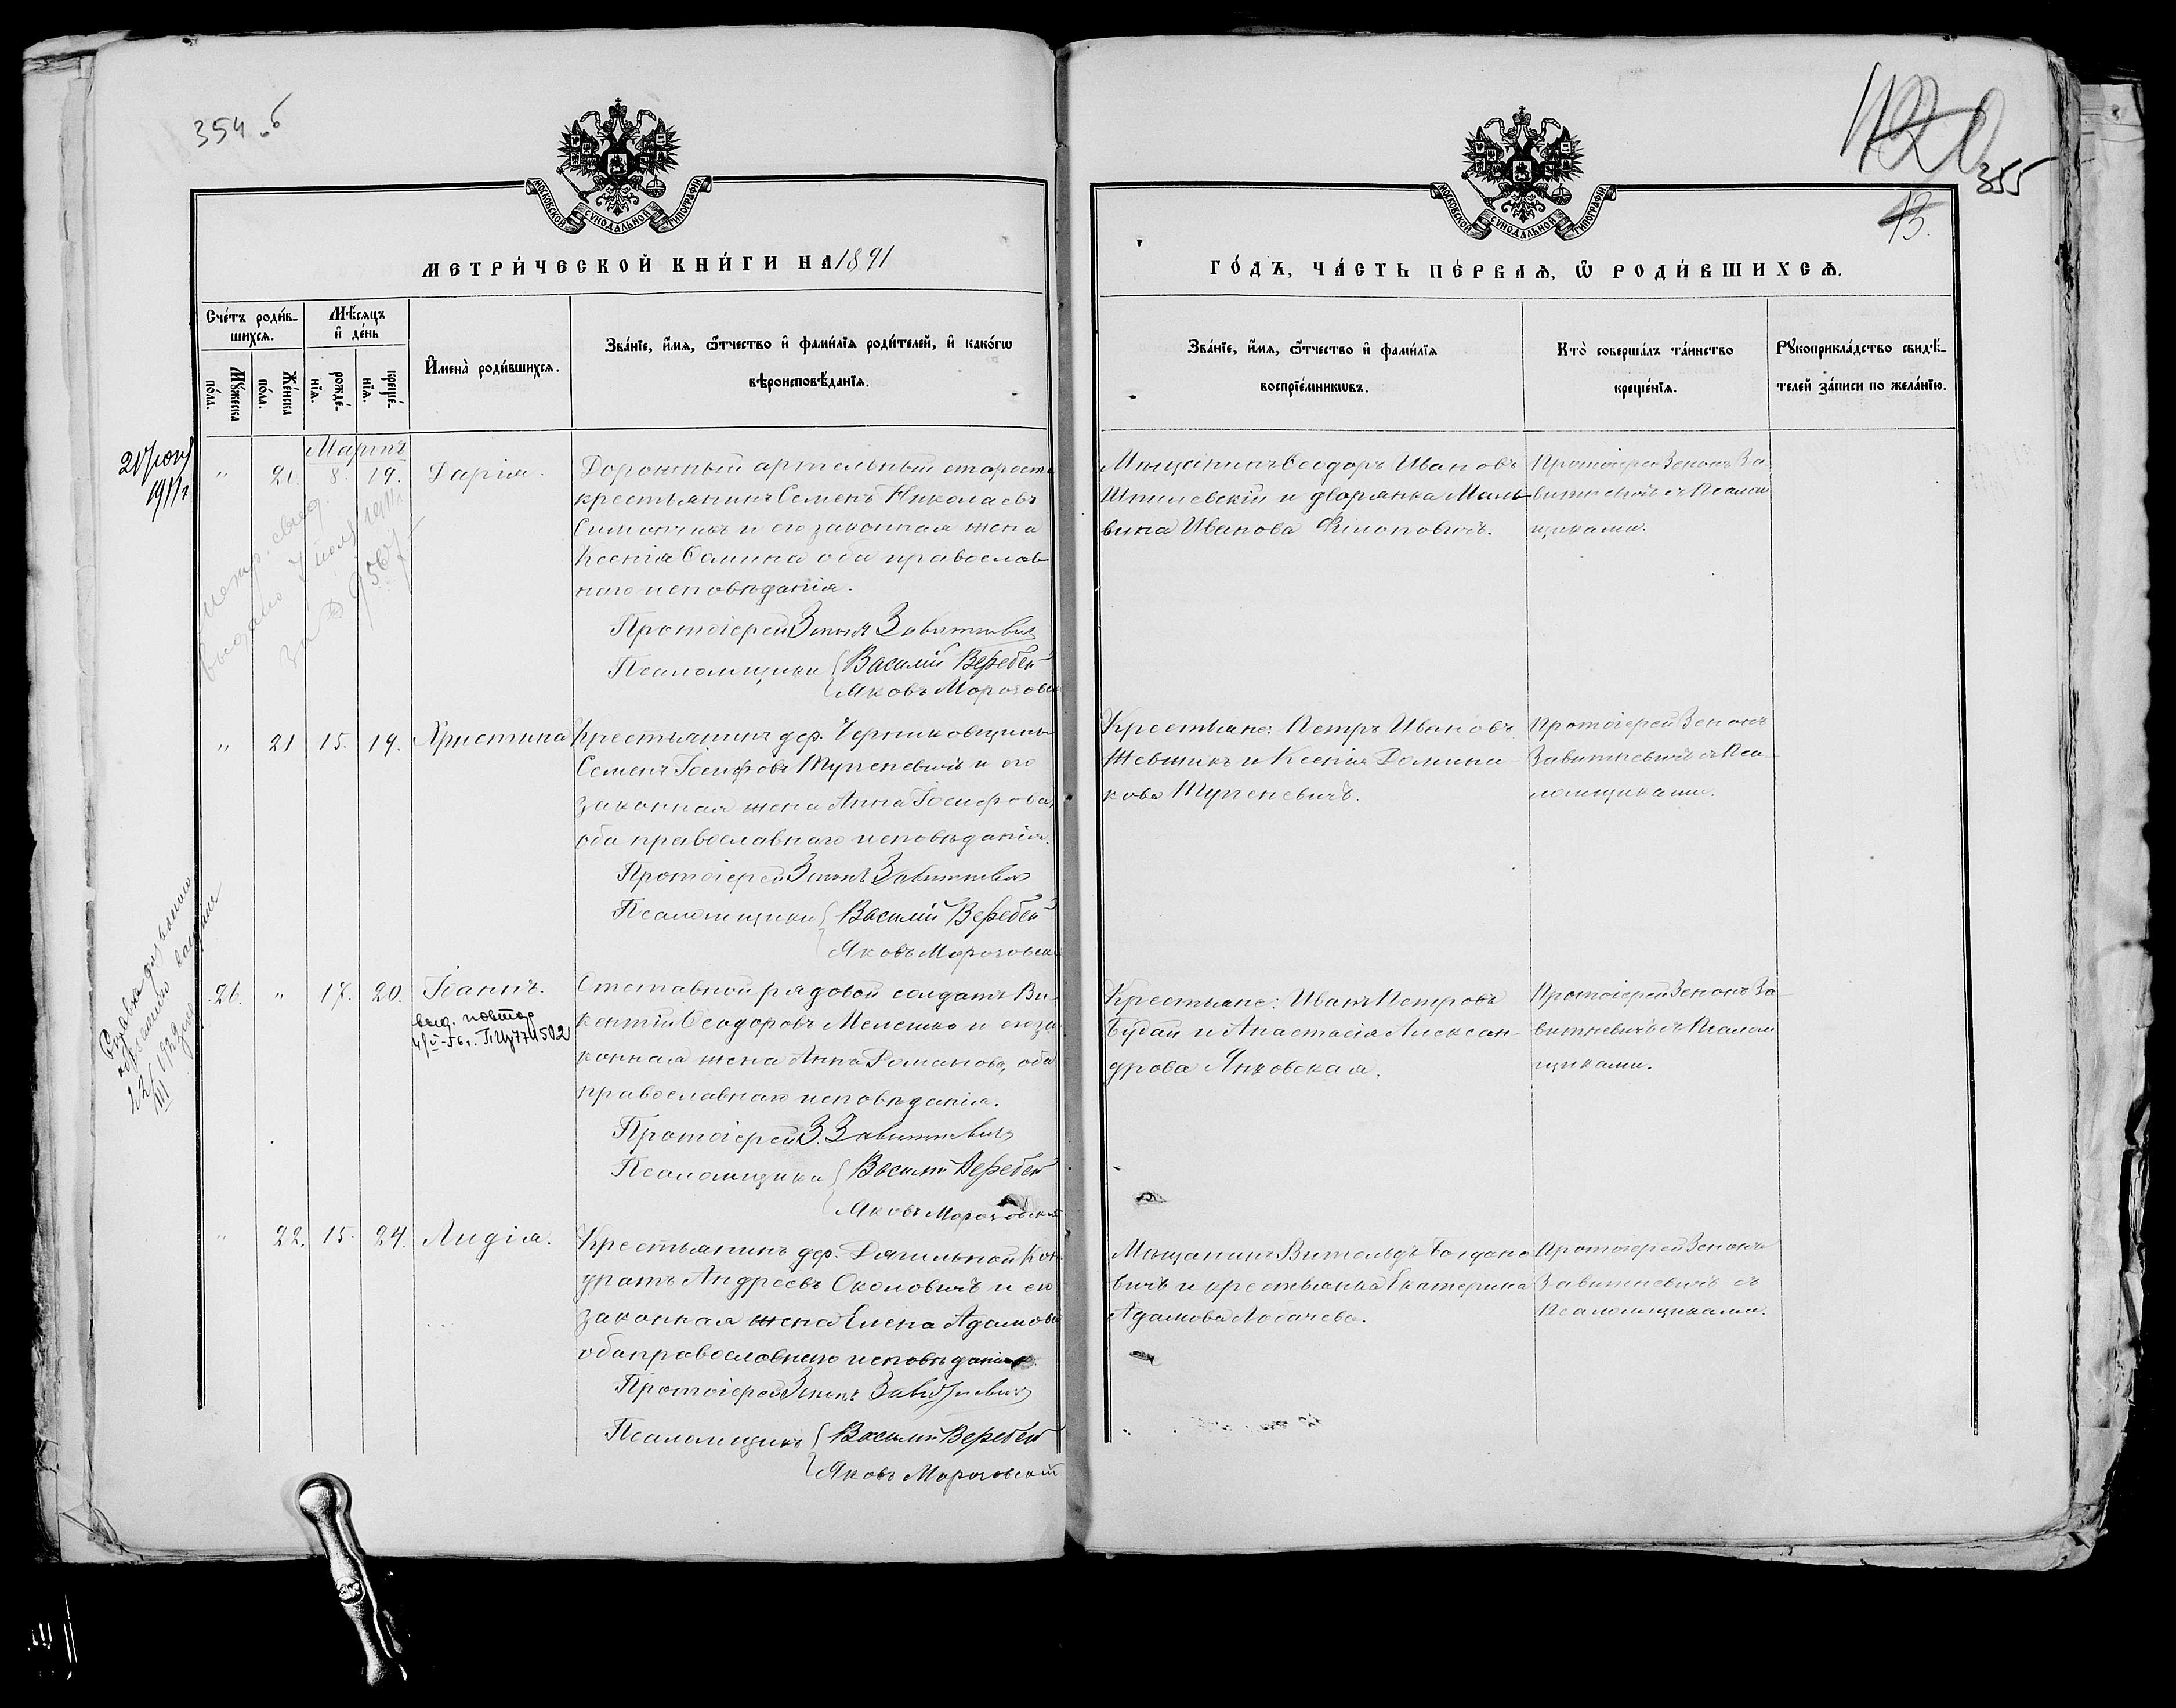 354 об
МОСКОВСКОЙ СѴНОДАЛЬНОЙ ТИПОГРАФІИ
МЕТРИ́ЧЕСКОЙ КНИ́ГИ НА 1891
Сче́тъ роди́в-
шихсѧ.
Мѣ́сѧцъ
и҆ де́нь
Мꙋ́жеска
по́ла.
Же́нска
по́ла.
рожде́-
нїѧ.
креще́-
нїѧ.
И҆мена̀ роди́вшихсѧ.
Зва́нїе, и҆́мѧ, ѻ҆́тчество и҆ фами́лїѧ роди́телей, и҆ како́гѡ
вѣроисповѣ́данїѧ.
Мартъ
1911 г.
" 21. 8. 19. Дарія.
Дорожный артельный староста
крестьянинъ Семенъ Николаевъ
Симончикъ и его законная жена
Ксенія Фомина оба православ-
наго исповѣданія.
Протоіерей Зенонъ Завитневичъ
Псаломщики { Василій Веребей
Яковъ Морозовскій
метр. свид.
выдано 7 іюля 1911 г.
за № 956
" 21 15. 19. Христина
Крестьянинъ дер. Черниховщины
Семенъ Іосифовъ Тупеневичъ и его
законная жена Анна Іосифова,
оба православнаго исповѣданія.
Протоіерей Зенонъ Завитневичъ
Псаломщики { Василій Веребей
Яковъ Морозовскій
26. " 17. 20. Іоаннъ.
выд. повтор
Отставной рядовой солдатъ Ви-
кентій Ѳеодоровъ Мелешко и его за-
конная жена Анна Романова, оба
православнаго исповѣданія.
Протоіерей З. Завитневичъ
Псаломщики { Василій Веребей
Яковъ Морозовскій
" 22. 15. 24. Лидія.
Крестьянинъ дер. Дягильной Кон-
дратъ Андреевъ Околовичъ и его
законная жена Елена Адамова
оба православнаго исповѣданія.
Протоіерей Зенонъ Завитневичъ
Псаломщики { Василій Веребей
Яковъ Морозовскій
420
355
13.
МОСКОВСКОЙ СѴНОДАЛЬНОЙ ТИПОГРАФІИ
ГО́ДЪ, ЧА́СТЬ ПЕ́РВАѦ, Ѽ РОДИ́ВШИХСѦ.
Зва́нїе, и҆́мѧ, ѻ҆́тчество и҆ фами́лїѧ
воспрїе́мникѡвъ.
Кто̀ соверша́лъ та́инство
креще́нїѧ.
Рꙋкоприкла́дство свидѣ́-
телей за́писи по жела́нїю.
Мѣщанинъ Ѳеодоръ Ивановъ
Шпилевскій и дворянка Маль-
вина Иванова Филиповичъ.
Протоіерей Зенонъ За-
витневичъ съ Псалом-
щиками.
Крестьяне: Петръ Ивановъ
Шевчикъ и Ксенія Домина-
кова Тупеневичъ.
Протоіерей Зенонъ
Завитневичъ съ Пса-
ломщиками.
Крестьяне: Иванъ Петровъ
Будай и Анастасія Алексан-
дрова Янковская.
Протоіерей Зенонъ За-
витневичъ съ Псалом-
щиками.
Мѣщанинъ Витольдъ Богдано-
вичъ и крестьянка Екатерина
Адамова Логачева.
Протоіерей Зенонъ
Завитневичъ съ
Псаломщиками.